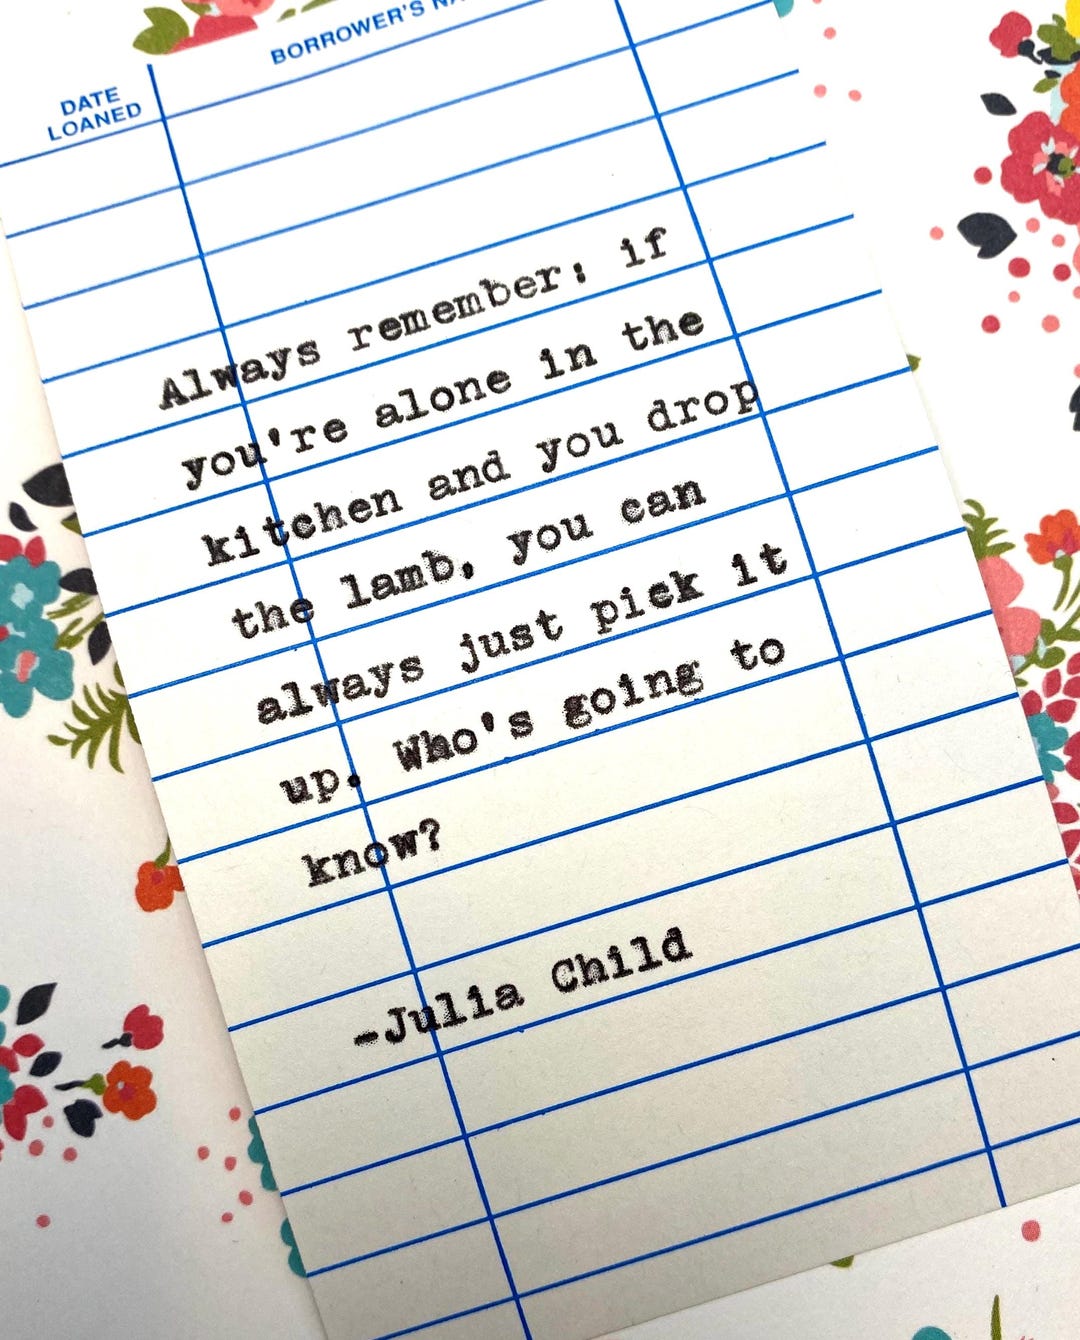 BORROWER'S
DATE
LOANED
Always remember: if
you're alone in the
kitchen and you drop
the lamb, you can
always just pick it
up. Who's going to
know?
-Julia Child